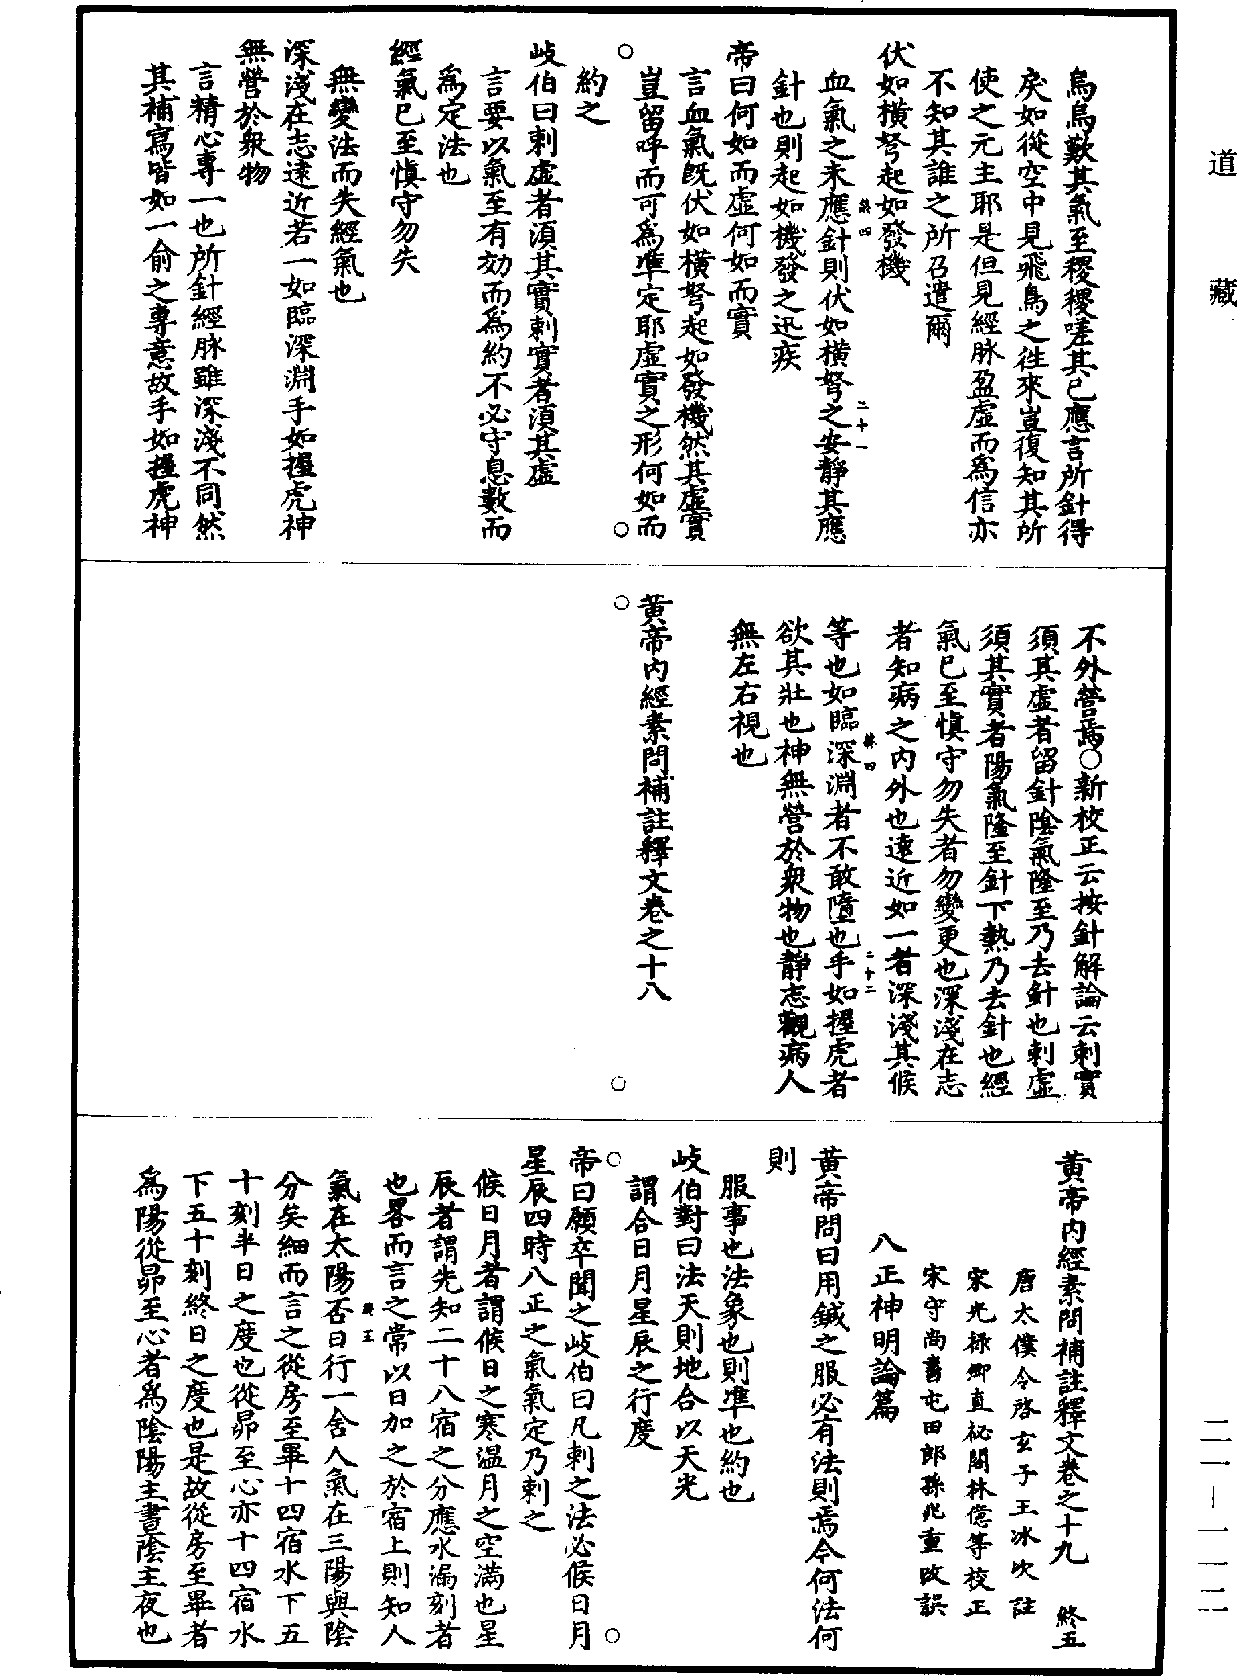 道藏
烏烏歎其氣至稷稷嗟其已應言所針得
戾如從空中見飛鳥之往來豈復知其所
使之元主耶是但見經脉盈虛而爲信亦
不知其誰之所召遣爾
伏如橫弩起如發機
血氣之未應針則伏如橫弩之安靜其應
針也則起如機發之迅疾
帝曰何如而虛何如而實
言血氣旣伏如橫弩起如發機然其虛實
豈留呼而可爲準定耶虛實之形何如而
約之
岐伯曰刺虛者須其實刺實者須其虛
言要以氣至有効而爲約不必守息數而
爲定法也
經氣已至愼守勿失
無變法而失經氣也
深淺在志遠近若一如臨深淵手如握虎神
無營於衆物
言精心專一也所針經脉雖深淺不同然
其補寫皆如一俞之專意故手如握虎神
不外營焉○新校正云按針解論云刺實
須其虛者留針陰氣隆至乃去針也刺虛
須其實者陽氣隆至針下熱乃去針也經
氣已至愼守勿失者勿變更也深淺在志
者知病之内外也遠近如一者深淺其候
等也如臨深淵者不敢墮也手如握虎者
欲其壯也神無營於衆物也靜志觀病人
無左右視也
黃帝内經素問補註釋文卷之十八
黃帝内經素問補註釋文卷之十九 終五
唐太僕令啓玄子王冰次註
宋光祿卿直祕閣林億等校正
宋守尚書屯田郎孫兆重改誤
八正神明論篇
黃帝問曰用鍼之服必有法則焉今何法何
則
服事也法象也則準也約也
岐伯對曰法天則地合以天光
謂合日月星辰之行度
帝曰願卒聞之岐伯曰凡刺之法必候日月
星辰四時八正之氣氣定乃刺之
候日月者謂候日之寒溫月之空滿也星
辰者謂先知二十八宿之分應水漏刻者
也畧而言之常以日加之於宿上則知人
氣在太陽否日行一舍人氣在三陽與陰
分矣細而言之從房至畢十四宿水下五
十刻半日之度也從昴至心亦十四宿水
下五十刻終日之度也是故從房至畢者
爲陽從昴至心者爲陰陽主晝陰主夜也
終四
二十一
終四
二十二
終五
二一—一一二